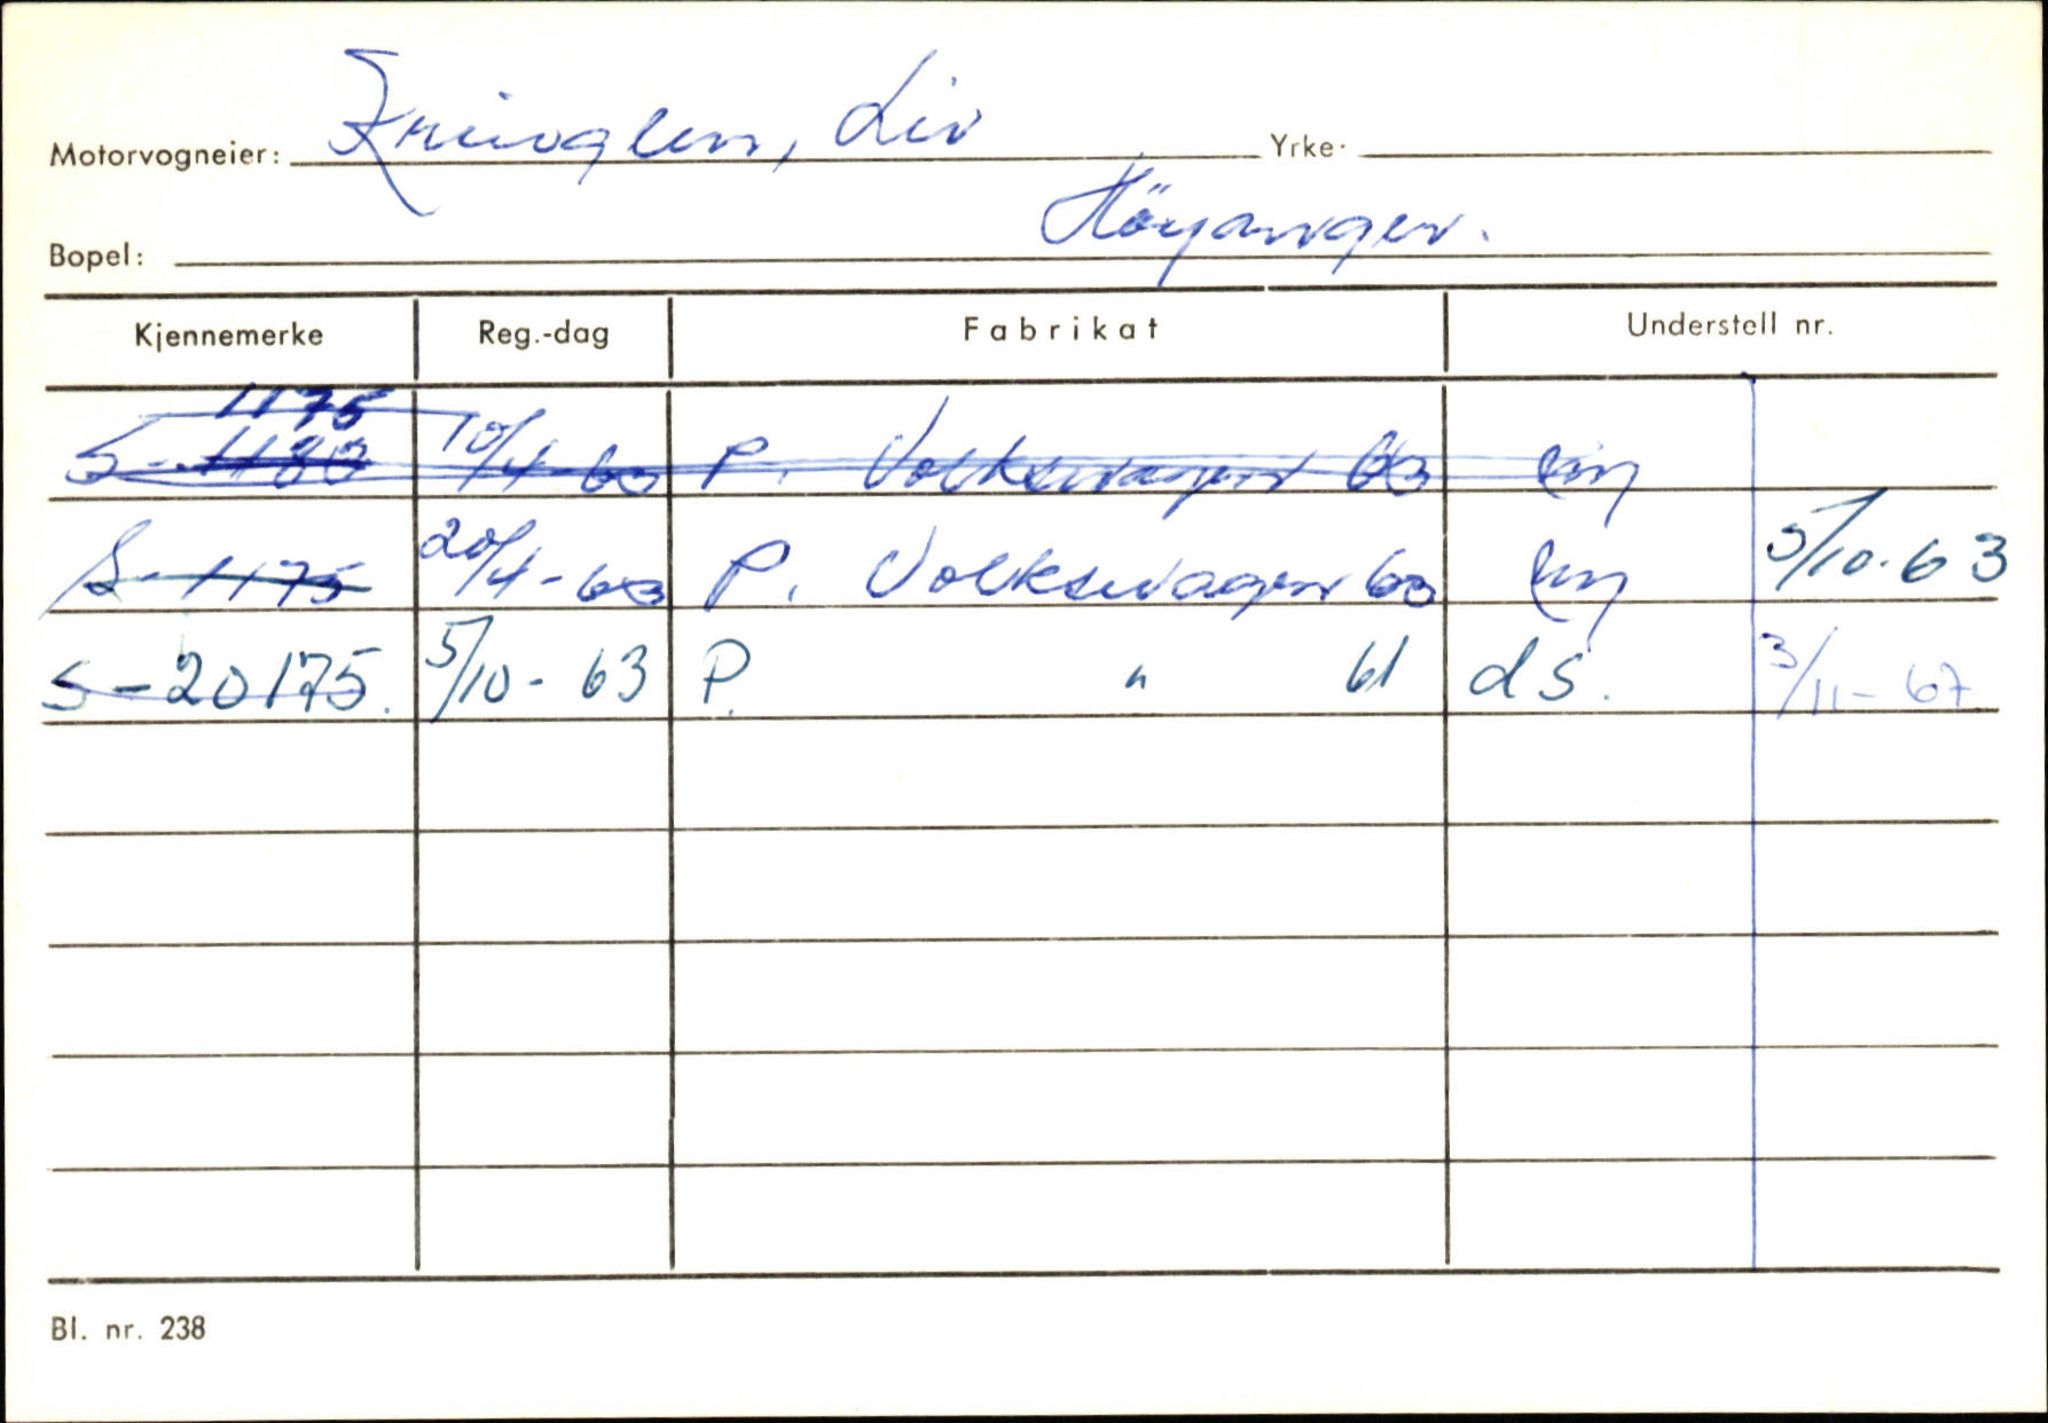 Motorvogneier: Kringlen, Liv Yrke.
Bopel: Höyanger.
Kjennemerke Reg.-dag Fabrikat Understell nr.
1175
S-1180 10/4-63 P. Volkswagen 63
S-1175 20/4-63 P. Volkswagen 63 5/10-63
S-20175. 5/10-63 P. " 61 ds. 3/11-67
Bl. nr. 238